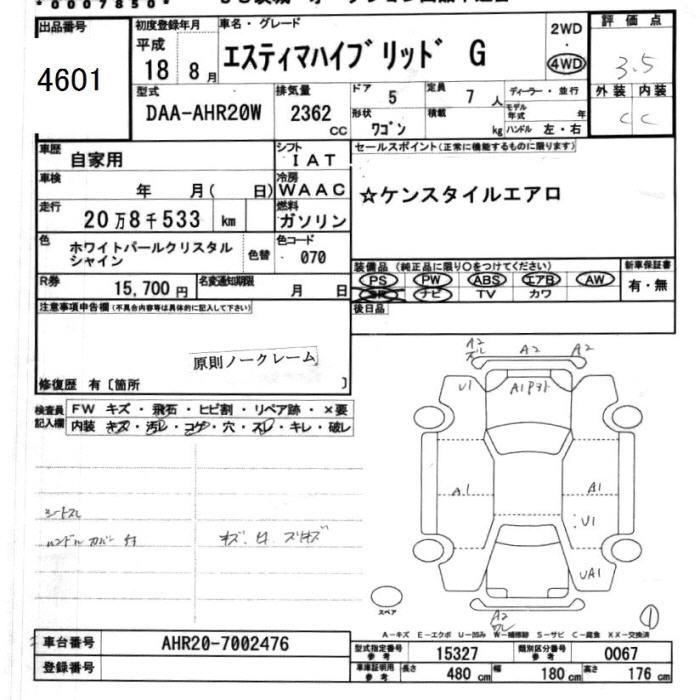 *0007850*
出品番号
4601
初度登録年月
平成
18 8月
車名・グレード
エスティマハイブリッド G
2WD
・
4WD
評価点
3.5
外装 内装
C C
型式
DAA-AHR20W
排気量
2362
CC
ドア
5
定員
7 人
形状
ワゴン
積載
kg
ディーラー・並行
モデル年式 年
ハンドル 左・右
車歴
自家用
シフト
IAT
車検
年 月( 日)
冷房
WAAC
走行
20万8千533 km
燃料
ガソリン
色
ホワイトパールクリスタル
シャイン
色替
色コード
070
セールスポイント(正常に機能するものに限ります)
☆ケンスタイルエアロ
R券
15,700円
名変通知期限
月 日
装備品(純正品に限り〇をつけてください)
PS PW ABS エアB AW
SR ナビ TV カワ
新車保証書
有・無
後日品
注意事項申告欄(不具合内容等は具体的に記入して下さい)
原則ノークレーム
修復歴 有〔箇所 〕
検査員
記入欄
FW キズ・飛石・ヒビ割・リペア跡・×要
内装 キズ・汚レ・コゲ・穴・スレ・キレ・破レ
シートスレ
ハンドル カバー付
A2
A2
A2
U1
A1
A1
A1
U1
UA1
A2
スペア
1
A-キズ E-エクボ U-凹み W-補修跡 S-サビ C-腐食 XX-交換済
車台番号
AHR20-7002476
登録番号
型式指定番号
参考
15327
類別区分番号
参考
0067
車庫証明用
参考
長さ
480 cm
幅
180 cm
高さ
176 cm